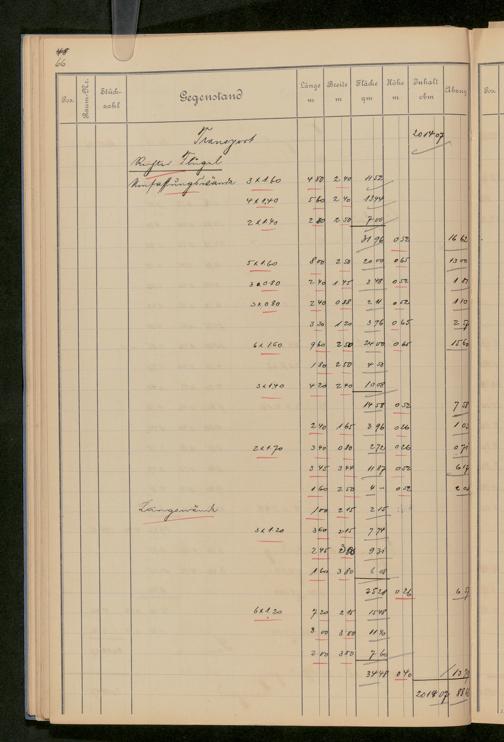 48
66
Pos. Raum-Nr. Stück-zahl Gegenstand Länge m Breite m Fläche qm Höhe m Inhalt cbm Abzug Pos.
Transport 2014 07
Rechter Flügel
Umfassungswände 3 x 1.60 4 80 2 40 11 52
4 x 1.40 5 60 2 40 13 44
2 x 1.40 2 80 2 50 7 00
31 96 0 52 16 62
5 x 1.60 8 00 2 50 20 00 0 65 13 00
3 x 0.80 2 40 1 45 3 48 0 52 1 81
3 x 0.80 2 40 0 88 2 11 0 52 1 10
3 30 1 20 3 96 0 65 2 57
6 x 1.60 9 60 2 50 24 00 0 65 15 60
1 80 2 50 4 50
3 x 1.40 4 20 2 40 10 08
14 58 0 52 7 58
2 40 1 65 3 96 0 26 1 03
2 x 1.70 3 40 0 80 2 72 0 26 0 71
3 45 3 44 11 87 0 52 6 17
1 60 2 50 4 – 0 52 2 08
Längswände 1 00 2 15 2 15
3 x 1.20 3 60 2 15 7 74
2 45 3 80 9 31
1 60 3 80 6 08
25 28 0 26 6 57
6 x 1.20 7 20 2 15 15 48
3 00 3 80 11 40
2 00 3 80 7 60
34 48 0 40
2014 07